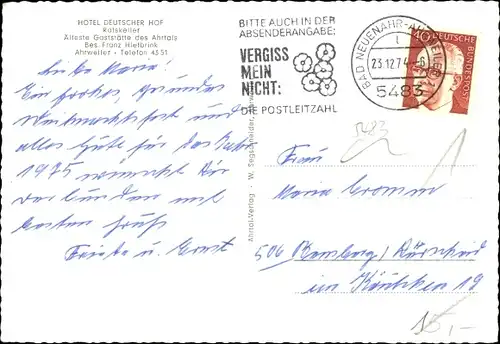 HOTEL DEUTSCHER HOF
Ratskeller
Älteste Gaststätte des Ahrtals
Bes. Franz Hielbrink
Ahrweiler • Telefon 4351
Liebe Maria!
Ein frohes, gesundes
Weihnachtsfest und
alles Gute für das Jahr
1975 wünscht Dir
verbunden mit
besten Grüß
Frieda u. Ernst
BITTE AUCH IN DER
ABSENDERANGABE:
VERGISS
MEIN
NICHT:
DIE POSTLEITZAHL
BAD NEUENAHR-AHRWEILER
23.12.74-6
5483
40
DEUTSCHE
BUNDESPOST
5483
Ahrtal-Verlag - W.
Frau
Maria Cromm
506 Bensberg/Dürscheid
im Käulchen 19
15,-